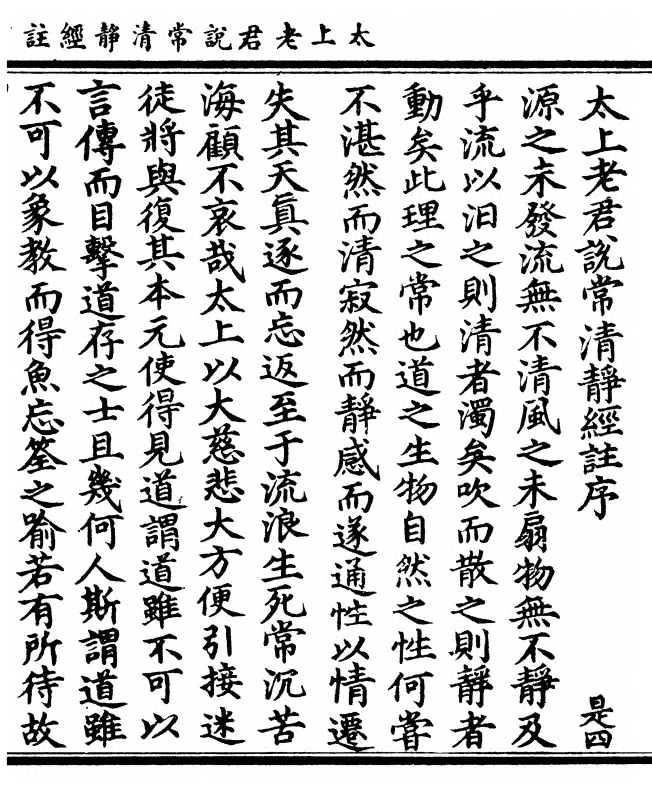 太上老君説常清靜經註
太上老君説常清靜經註序
是四
源之未發流無不清風之未扇物無不靜及
乎流以汨之則清者濁矣吹而散之則靜者
動矣此理之常也道之生物自然之性何嘗
不湛然而清寂然而靜感而遂通性以情遷
失其天真逐而忘返至于流浪生死常沉苦
海顧不哀哉太上以大慈悲大方便引接迷
徒將與復其本元使得見道謂道雖不可以
言傳而目擊道存之士且幾何人斯謂道雖
不可以象教而得魚忘筌之喻若有所待故